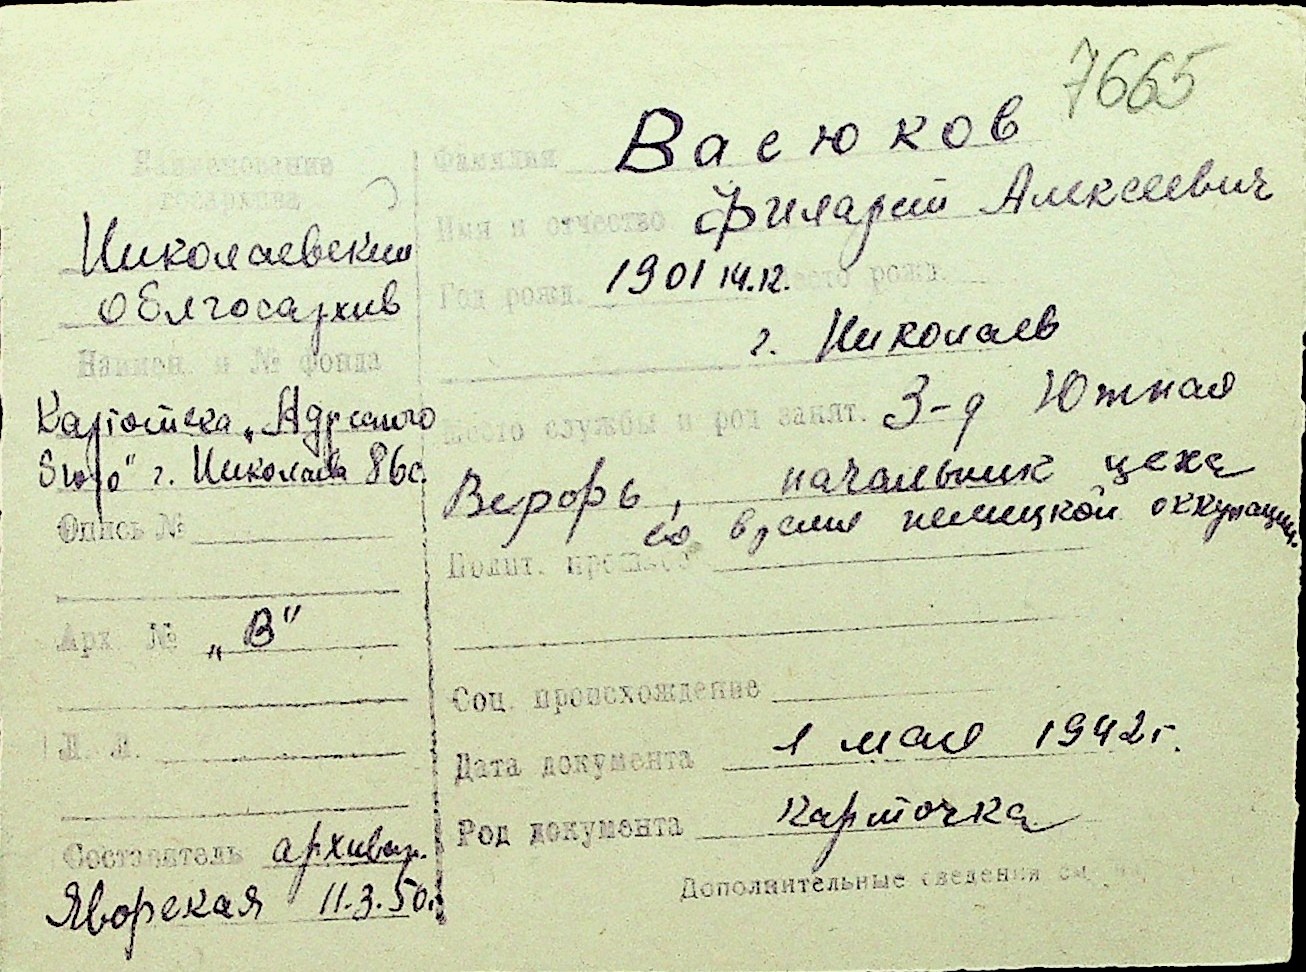 7665
Наименование
госархива
Николаевский
облгосархив
Наимен. и № фонда
Картотека „Адресного
бюро" г. Николаева 86с.
Опись №
Арх. № „В"
Л. Л.
Составитель архивар.
Яворская 11.3.50г.
Фамилия Васюков
Имя и отчество Филарет Алексеевич
Год рожд. 1901 14.12. Место рожд.
г. Николаев
Место службы и род занят. З-д Южная
Верфь, начальник цеха
во время немецкой оккупации.
Полит. прошлое
Соц. происхождение
Дата документа 1 мая 1942г.
Род документа Карточка
Дополнительные сведения см.